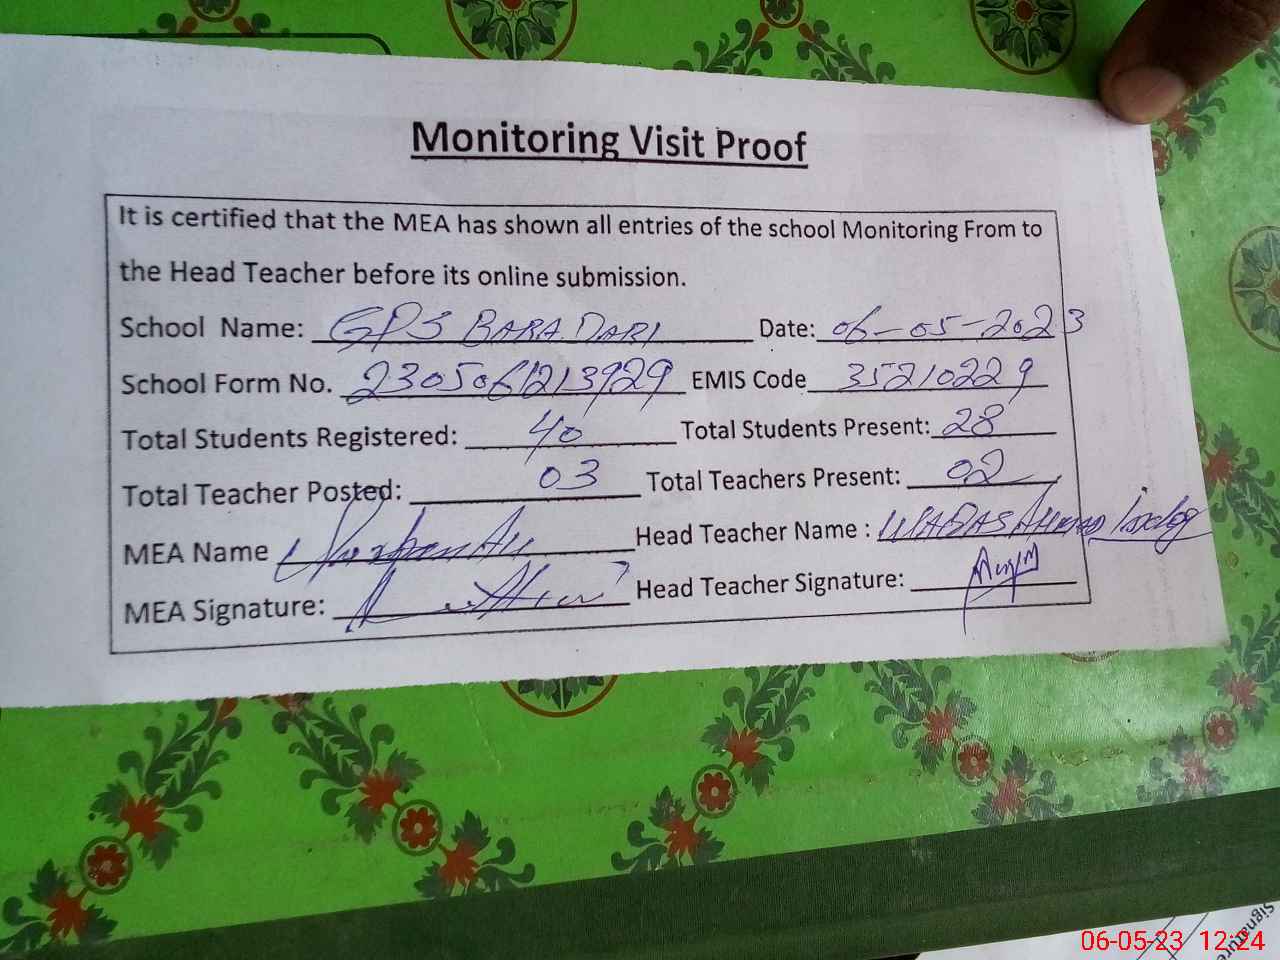 Monitoring Visit Proof
It is certified that the MEA has shown all entries of the school Monitoring From to
the Head Teacher before its online submission.
School Name: GPS BARA DARI Date: 06-05-2023
School Form No. 2305061213929 EMIS Code 35210229
Total Students Registered: 40 Total Students Present: 28
Total Teacher Posted: 03 Total Teachers Present: 02
MEA Name Head Teacher Name : AHMAD
MEA Signature: Head Teacher Signature:
Signature
06-05-23 12:24